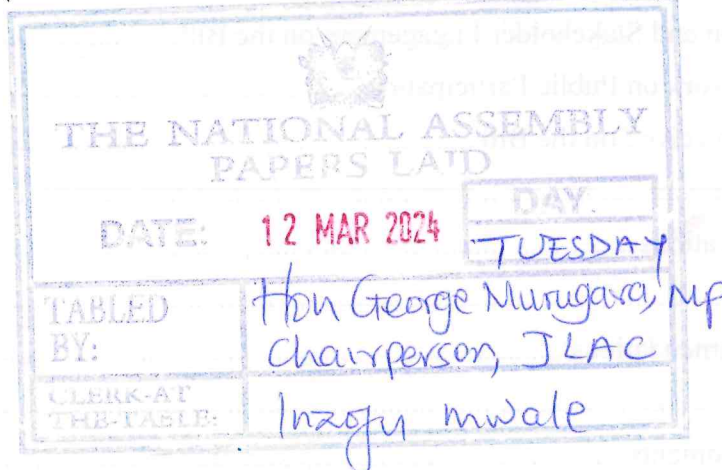 THE NATIONAL ASSEMBLY
PAPERS LAID
DATE: 12 MAR 2024
DAY.
TUESDAY
TABLED BY:
Hon George Murugara, MP
Chairperson, JLAC
CLERK-AT
THE-TABLE:
Inzofu Mwale